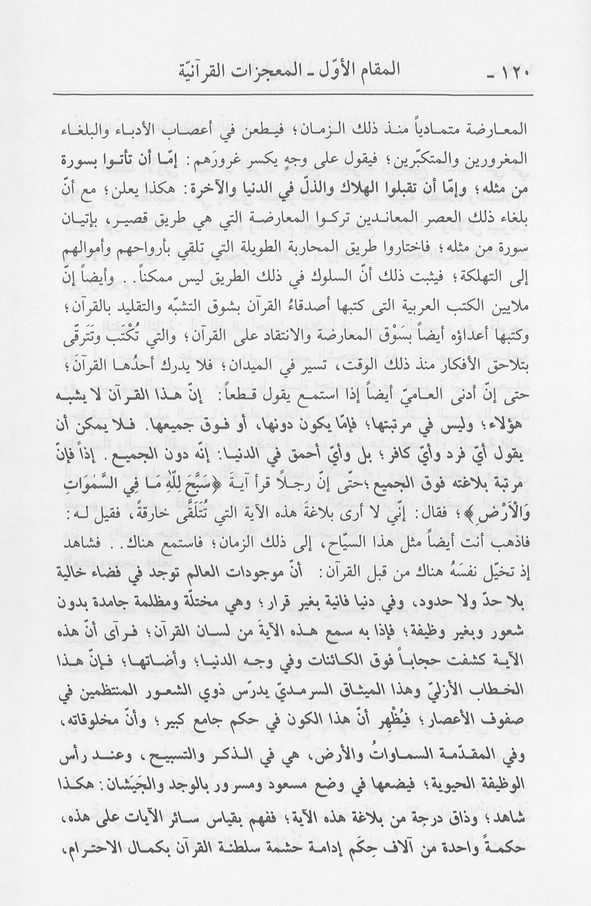 ١٢٠ ـ المقام الأوّل ـ المعجزات القرآنيّة
المعـارضة متمـادياً منـذ ذلك الـزمـان؛ فيـطعن في أعصـاب الأدبـاء والبلغـاء
المغرورين والمتكبّرين؛ فيقول على وجهٍ يكسر غرورَهم: إمّا أن تأتوا بسورة
من مثله؛ وإمّا أن تقبلوا الهلاك والذلّ في الدنيا والآخرة: هكذا يعلن؛ مع أنّ
بلغاء ذلك العصر المعانـدين تركـوا المعارضـة التي هي طريق قصيـر، بإتيـان
سورة من مثله؛ فاختاروا طريق المحاربة الطويلة التي تلقي بأرواحهم وأموالهم
إلى التهلكة؛ فيثبت ذلك أنّ السلوك في ذلك الطريق ليس ممكناً. . وأيضاً إنّ
ملايين الكتب العربية التى كتبها أصدقاءُ القرآن بشوق التشبّه والتقليد بالقرآن؛
وكتبها أعداؤه أيضاً بسَوْق المعارضة والانتقاد على القرآن؛ والتي تُكْتَب وتَتَرقّى
بتلاحق الأفكار منذ ذلك الوقت، تسير في الميدان؛ فلا يدرك أحدُهـا القرآنَ؛
حتى إنّ أدنى العـاميّ أيضـاً إذا استمـع يقول قـطعـاً: إنّ هـذا القـرآن لا يشبـه
هؤلاء؛ وليس في مرتبتها؛ فإمّا يكون دونها، أو فـوق جميعها. فـلا يمكن أن
يقول أيّ فرد وأيّ كافر؛ بل وأيّ أحمق في الدنيـا: إنّه دون الجميـع. إذاً فإنّ
مرتبة بلاغته فوق الجميع؛حتّى إنّ رجـلًا قرأ آيـةَ ﴿سَبَّحَ لِلّهِ مَـا فِي السَّمٰوَاتِ
وَالْأَرْضِ﴾؛ فقال: إنّي لا أرى بلاغةَ هذه الآية التي تُتَلَقَّى خارقةً، فقيل لـه:
فاذهب أنت أيضاً مثل هذا السيّاح، إلى ذلك الزمان؛ فاستمع هناك. . فشاهد
إذ تخيّل نفسَهُ هناك من قبل القرآن: أنّ موجودات العالم توجد في فضاء خالية
بلا حدّ ولا حدود، وفي دنيا فانية بغير قرار؛ وهي مختلّة ومظلمة جامدة بدون
شعور وبغير وظيفة؛ فإذا به سمع هـذه الآيةَ من لسان القرآن؛ فـرآى أنّ هذه
الآيـة كشفت حجابـاً فوق الكـائنات وفي وجـه الدنيـا؛ وأضـاتهـا؛ فـإنّ هـذا
الخطـاب الأزليّ وهذا الميثـاق السرمـديّ يدرّس ذوي الشعـور المنتظمين في
صفوف الأعصار؛ فيُظْهِر أنّ هذا الكون في حكم جامع كبير؛ وأنّ مخلوقاته،
وفي المقـدّمـة السمـاواتُ والأرض، هي في الـذكـر والتسبيـح، وعنـد رأس
الوظيفة الحيوية؛ فيضعها في وضع مسعود ومسرور بالوجد والجَيَشان: هكـذا
شاهد؛ وذاق درجة من بلاغة هذه الآية؛ ففهم بقياس سائر الآيات على هذه،
حكمـةً واحدة من آلاف حِكَم إدامـة حشمة سلطنـة القرآن بكمـال الاحترام،